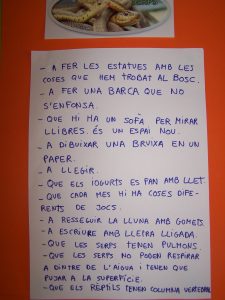 - A FER LES ESTATUES AMB LES
COSES QUE HEM TROBAT AL BOSC.
- A FER UNA BARCA QUE NO
S'ENFONSA.
- QUE HI HA UN SOFÀ PER MIRAR
LLIBRES. ÉS UN ESPAI NOU.
- A DIBUIXAR UNA BRUIXA EN UN
PAPER.
- A LLEGIR.
- QUE ELS IOGURTS ES FAN AMB LLET.
- QUE CADA MES HI HA COSES DIFE-
RENTS DE JOCS.
- A RESSEGUIR LA LLUNA AMB GOMETS.
- A ESCRIURE AMB LLETRA LLIGADA.
- QUE LES SERPS TENEN PULMONS.
- QUE LES SERPS NO PODEN RESPIRAR
A DINTRE DE L'AIGUA I TENEN QUE
PUJAR A LA SUPERFÍCIE.
- QUE ELS RÈPTILS TENEN COLUMNA VERTEBRAL